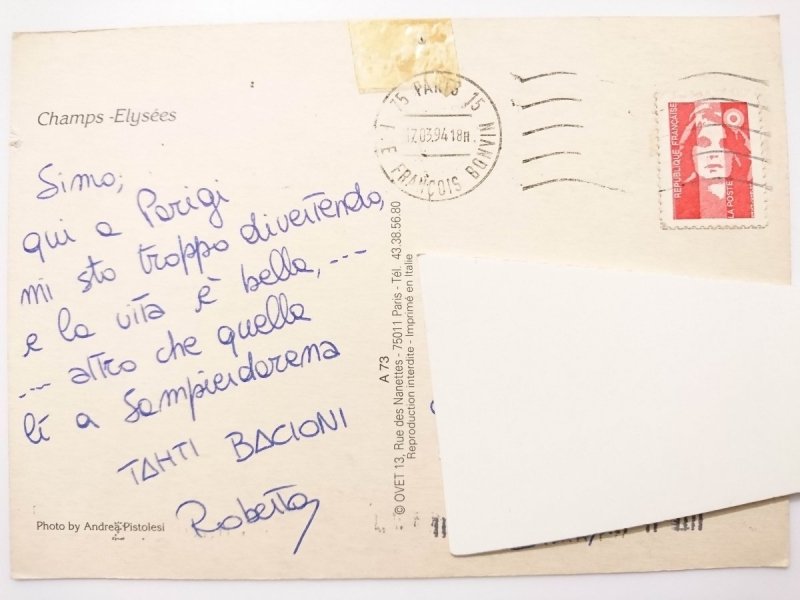 Champs -Elysées
Simo,
qui a Parigi
mi sto troppo divertendo,
e la vita è bella, ---
--- altro che quella
lì a Sampierdarena
TANTI BACIONI
Roberta
Photo by Andrea Pistolesi
A 73
© OVET 13, Rue des Nanettes - 75011 Paris - Tél. 43.38.56.80
Reproduction interdite - Imprimé en Italie
75 PARIS 15
17.03.94 18H
FRANÇOIS BONVIN
REPUBLIQUE FRANÇAISE
LA POSTE